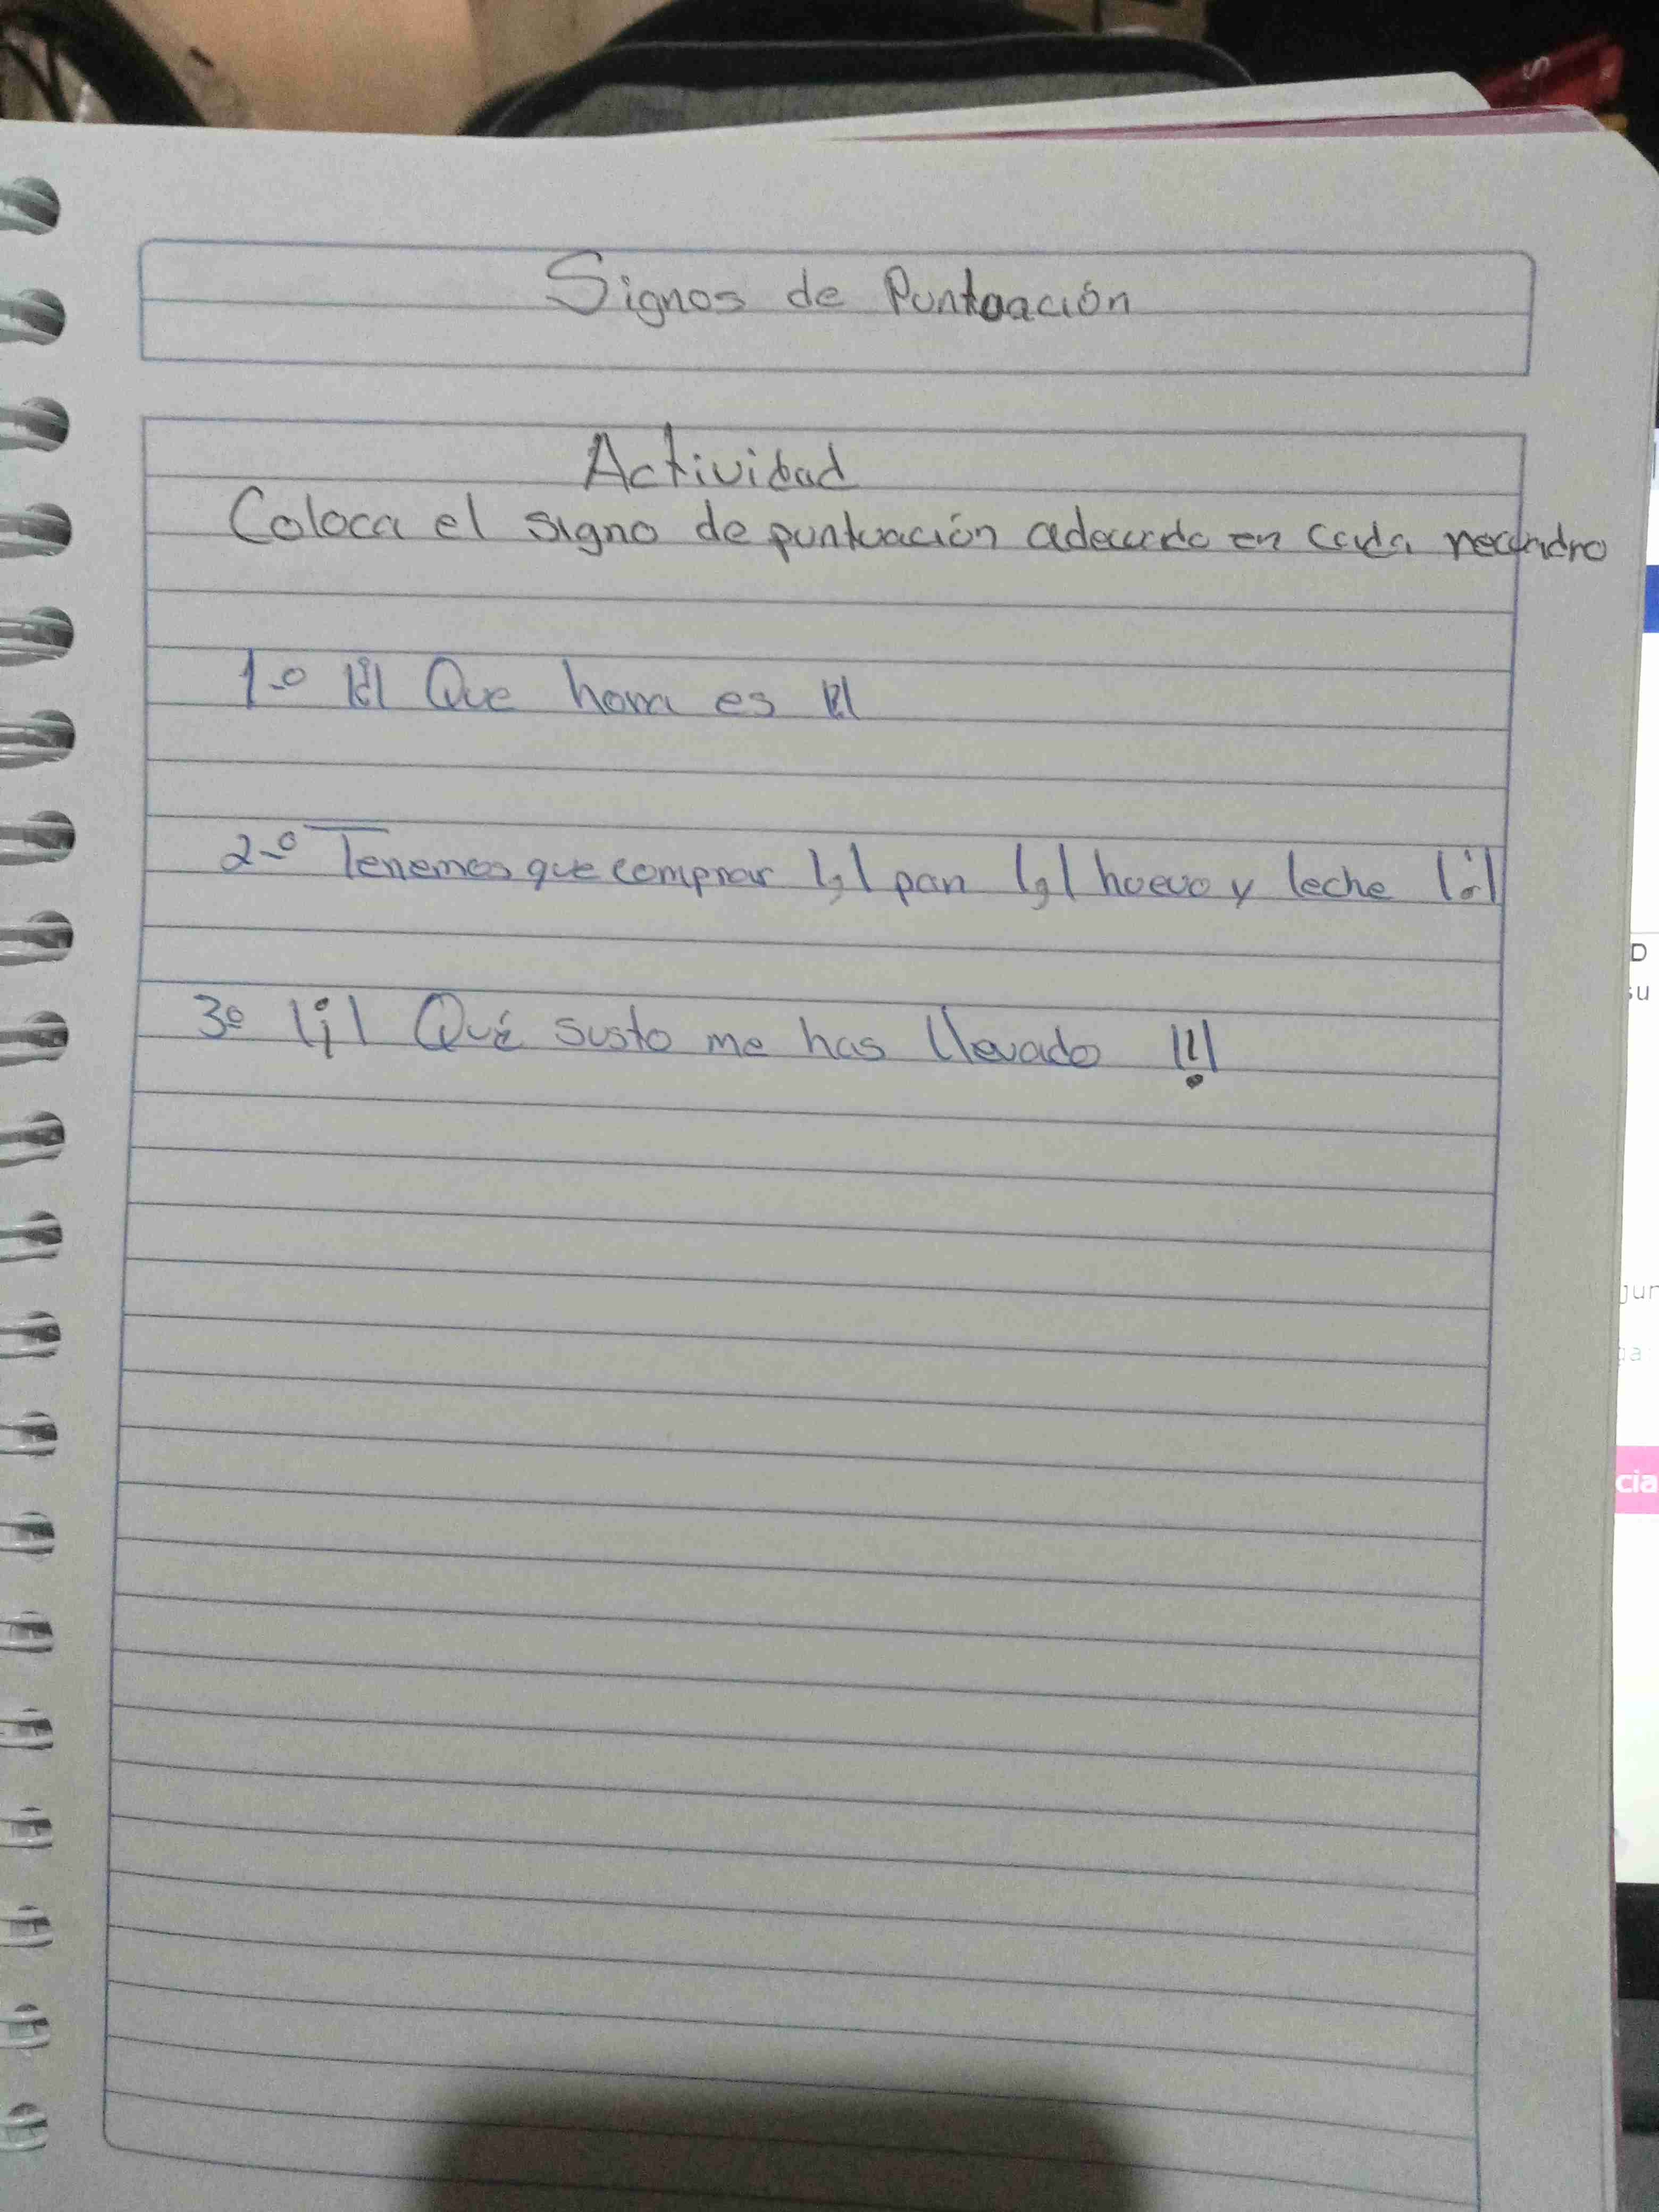 Signos de Puntuación
Actividad
Coloca el signo de puntuación adecuado en cada recuadro
1-º |¿| Que hora es |?|
2-º Tenemos que comprar |,| pan |,| huevo y leche |.|
3º |¡| Qué susto me has llevado |!|
D
su
jun
ga
cia